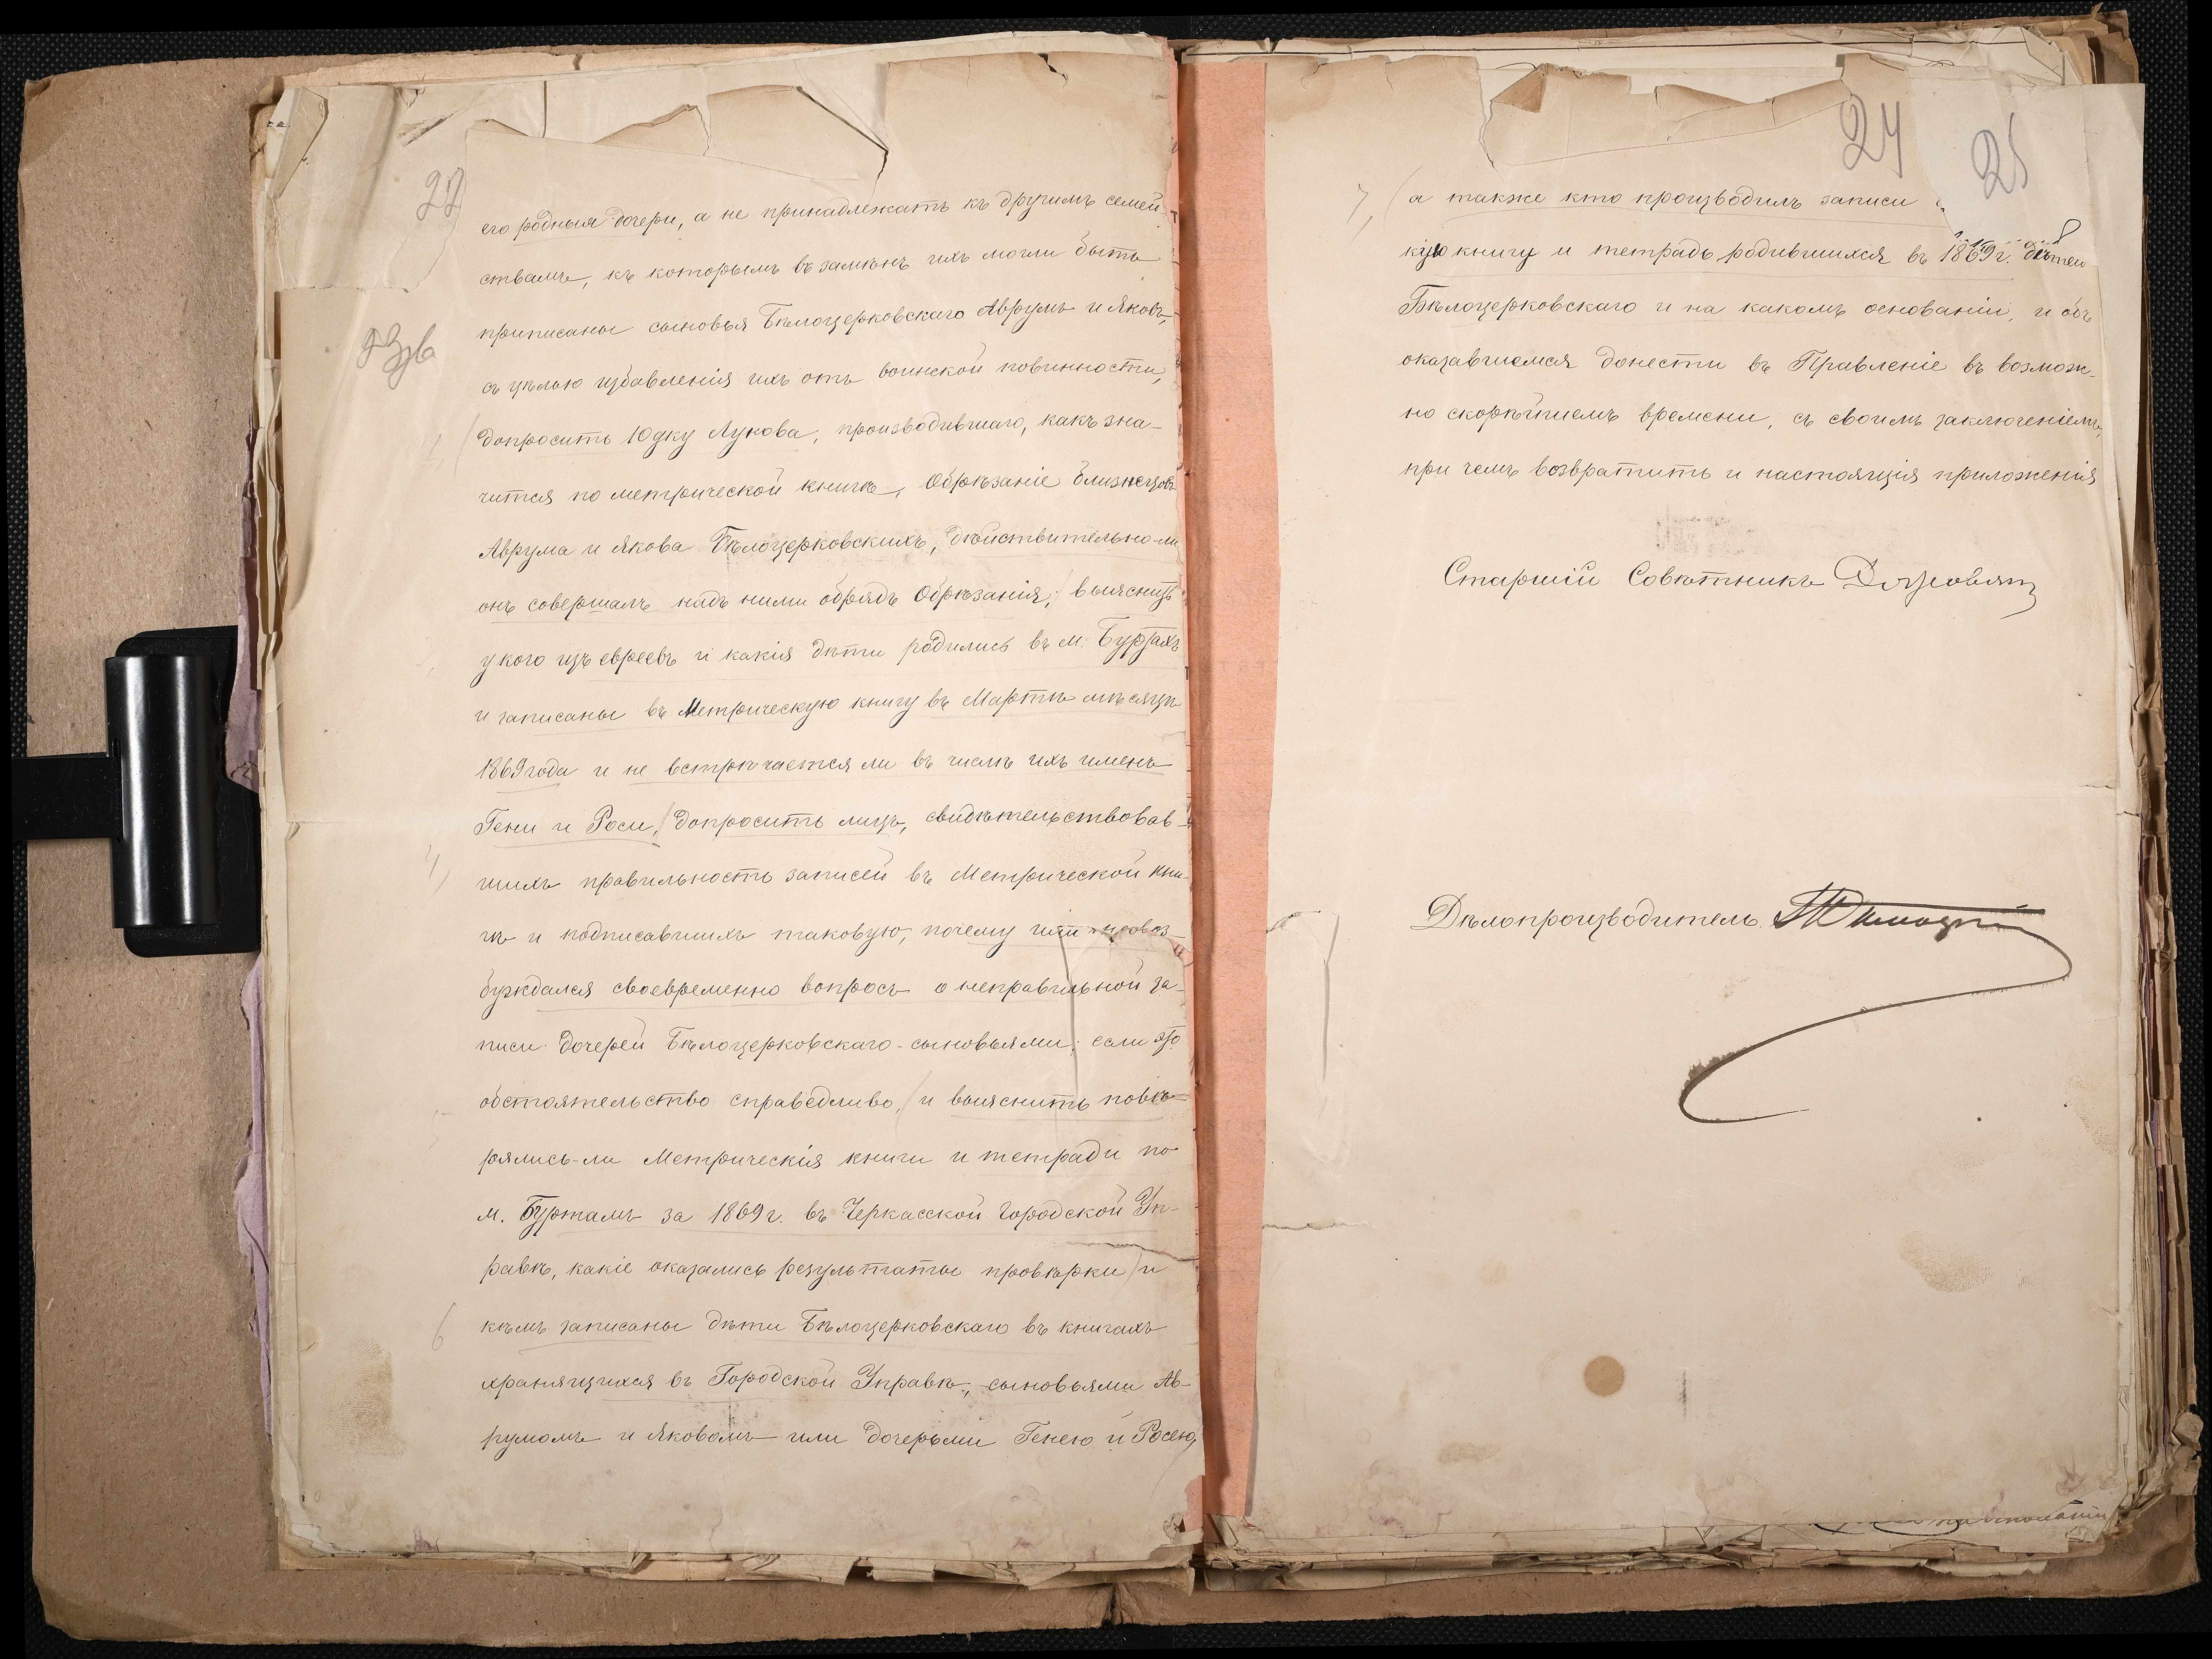 22
его родныя дочери, а не принадлежать къ другимъ семей-
ствамъ, къ которымъ въ замѣнъ ихъ могли быть
приписаны сыновья Бѣлоцерковскаго Аврумъ и Яковъ,
съ цѣлью избавленія ихъ отъ воинской повинности,
допросить Юдку Лукова, производившаго, какъ зна-
чится по метрической книгѣ, обрѣзаніе близнецовъ
Аврума и Якова Бѣлоцерковскихъ, дѣйствительно-ли
онъ совершалъ надъ ними обрядъ обрѣзанія; выяснить
у кого изъ евреевъ и какія дѣти родились въ м. Буртахъ
и записаны въ Метрическую книгу въ Мартѣ мѣсяцѣ
1869 года и не встрѣчается ли въ числѣ ихъ именъ
Гени и Роси, допросить лицъ, свидѣтельствовав-
4,
шихъ правильность записей въ Метрической кни-
гѣ и подписавшихъ таковую, почему ими невоз-
буждался своевременно вопросъ о неправильной за-
писи дочерей Бѣлоцерковскаго-сыновьями, если это
обстоятельство справедливо, и выяснить повѣ-
рялись-ли Метрическія книги и тетради по
м. Буртамъ за 1869 г. въ Черкасской Городской Уп-
равѣ, какіе оказались результаты провѣрки и
6
кѣмъ записаны дѣти Бѣлоцерковскаго въ книгахъ
хранящихся въ Городской Управѣ, сыновьями Ав-
румомъ и Яковомъ или дочерьми Генею и Росею,
24
25
7,
а также кто производилъ записи
кую книгу и тетрадь родившихся въ 1869 г. дѣтей
Бѣлоцерковскаго и на какомъ основаніи, и объ
оказавшемся донести въ Правленіе въ возмож-
но скорѣйшемъ времени, съ своимъ заключеніемъ,
при чемъ возвратить и настоящія приложенія
Старшій Совѣтникъ
Дѣлопроизводитель